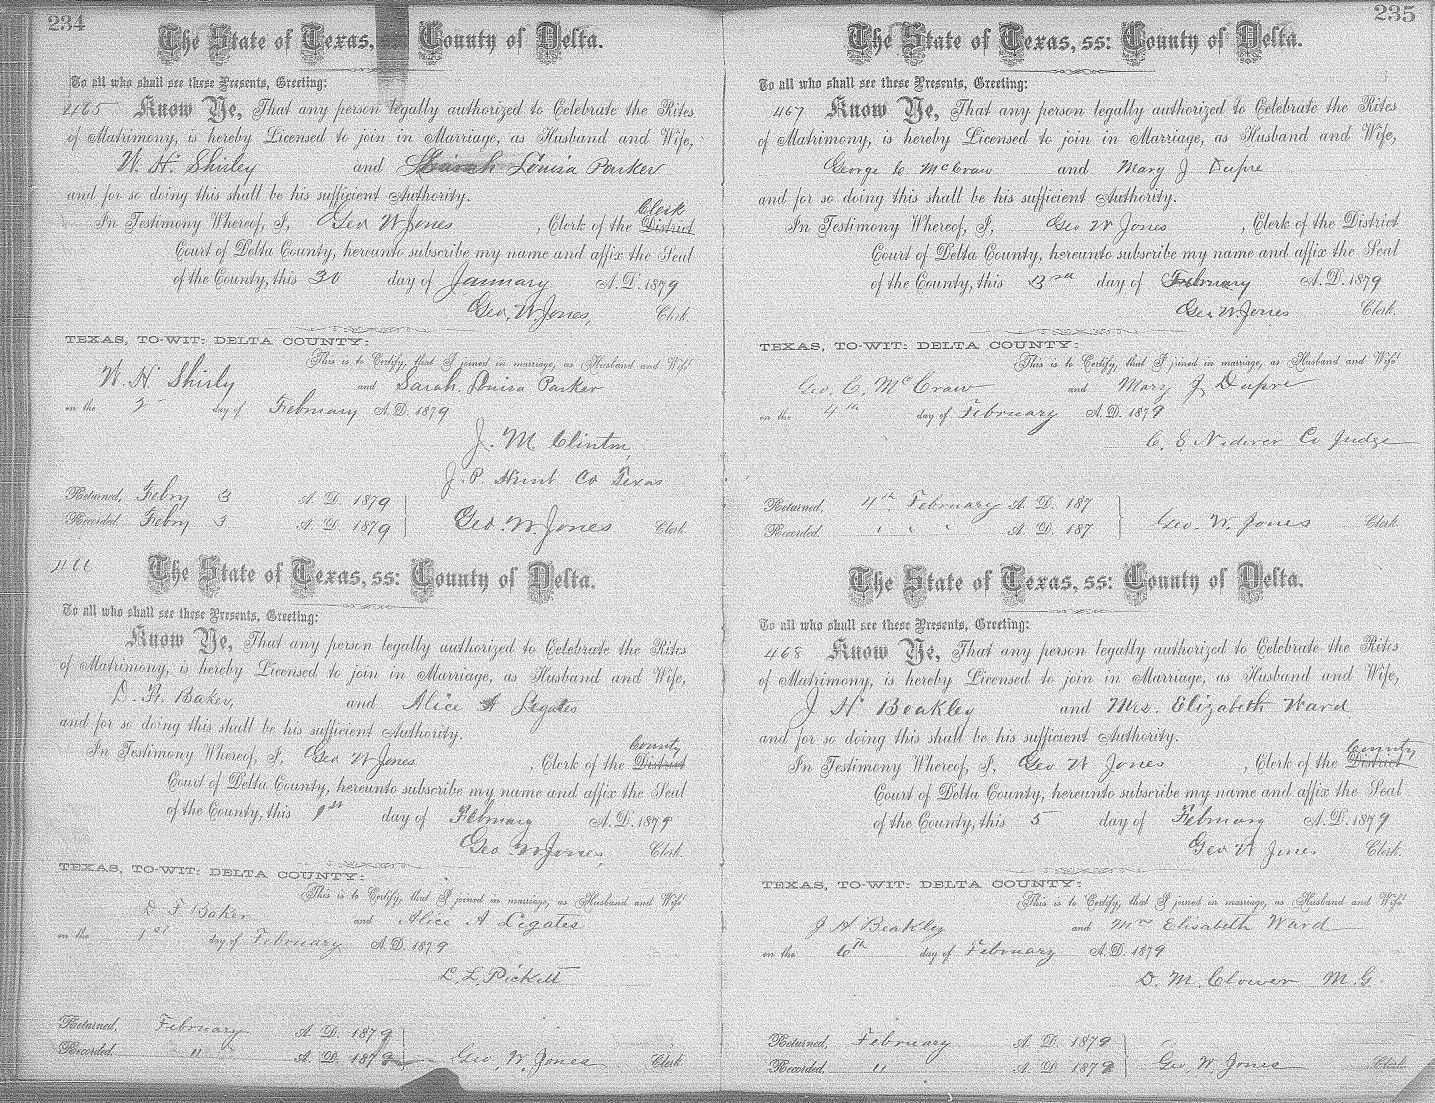 234
The State of Texas, ss: County of Delta.
To all who shall see these Presents, Greeting:
465 Know Ye, That any person legally authorized to Celebrate the Rites
of Matrimony, is hereby Licensed to join in Marriage, as Husband and Wife,
W. H. Shirley and Sarah Louisa Parker
and for so doing this shall be his sufficient Authority.
Clerk
In Testimony Whereof, I, Geo W Jones, Clerk of the District
Court of Delta County, hereunto subscribe my name and affix the Seal
of the County, this 30 day of January A. D. 1879
Geo. W Jones, Clerk
TEXAS, TO-WIT: DELTA COUNTY:
This is to Certify, that I joined in marriage, as Husband and Wife
W. H. Shirly and Sarah Louisa Parker
on the 2 day of February A. D. 1879
J. M. Clinton,
J. P. Hunt Co Texas
Returned, Febry 3 A. D. 1879
Recorded. Febry 3 A. D. 1879 Geo. W. Jones Clerk
466 The State of Texas, ss: County of Delta.
To all who shall see these Presents, Greeting:
Know Ye, That any person legally authorized to Celebrate the Rites
of Matrimony, is hereby Licensed to join in Marriage, as Husband and Wife,
D. F. Baker, and Alice A Legates
and for so doing this shall be his sufficient Authority.
County
In Testimony Whereof, I, Geo W Jones, Clerk of the District
Court of Delta County, hereunto subscribe my name and affix the Seal
of the County, this 1st day of February A. D. 1879
Geo W Jones, Clerk.
TEXAS, TO-WIT: DELTA COUNTY:
This is to Certify, that I joined in marriage, as Husband and Wife
D F Baker and Alice A Legates
on the 1st day of February A. D. 1879
L. L. Pickett
Returned, February A. D. 1879
Recorded. " A. D. 1879 Geo. W. Jones Clerk
235
The State of Texas, ss: County of Delta.
To all who shall see these Presents, Greeting:
467 Know Ye, That any person legally authorized to Celebrate the Rites
of Matrimony, is hereby Licensed to join in Marriage, as Husband and Wife,
George C McCraw and Mary J Dupre
and for so doing this shall be his sufficient Authority.
In Testimony Whereof, I, Geo W Jones, Clerk of the District
Court of Delta County, hereunto subscribe my name and affix the Seal
of the County, this 3rd day of February A. D. 1879
Geo W Jones Clerk.
TEXAS, TO-WIT: DELTA COUNTY:
This is to Certify, that I joined in marriage, as Husband and Wife
Geo. C. McCraw and Mary J Dupre
on the 4th day of February A. D. 1879
C. E. Co Judge
Returned, 4th February A. D. 187
Recorded. " " " A. D. 187 Geo. W. Jones Clerk
The State of Texas, ss: County of Delta.
To all who shall see these Presents, Greeting:
468 Know Ye, That any person legally authorized to Celebrate the Rites
of Matrimony, is hereby Licensed to join in Marriage, as Husband and Wife,
J H Beakley and Mrs. Elizabeth Ward
and for so doing this shall be his sufficient Authority.
County
In Testimony Whereof, I, Geo W Jones, Clerk of the District
Court of Delta County, hereunto subscribe my name and affix the Seal
of the County, this 5 day of February A. D. 1879
Geo W Jones Clerk.
TEXAS, TO-WIT: DELTA COUNTY:
This is to Certify, that I joined in marriage, as Husband and Wife
J H Beakley and Mrs Elisabeth Ward
on the 6th day of February A. D. 1879
D. M. Clower M. G.
Returned, February A. D. 1879
Recorded. " A. D. 1879 Geo. W. Jones Clerk